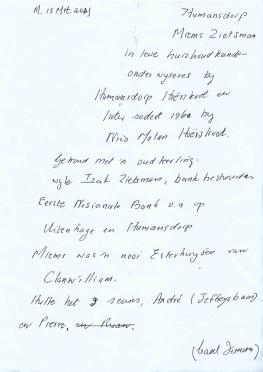 M. 15 Mrt. 2021
Humansdorp
Miems Zietsman
in lewe huishoudkunde-
onderwyseres by
Humansdorp Hoërskool en
later sedert 1960 by
Nico Malan Hoërskool.
Getroud met 'n oud leerling.
wyle Izak Zietsman, bankbestuurder
Eerste Nasionale Bank o.a op
Uitenhage en Humansdorp
Miems was 'n nooi Esterhuyzen van
Clanwilliam.
Hulle het 3 seuns, André (Jeffreysbaai)
en Pierre,
(Carel